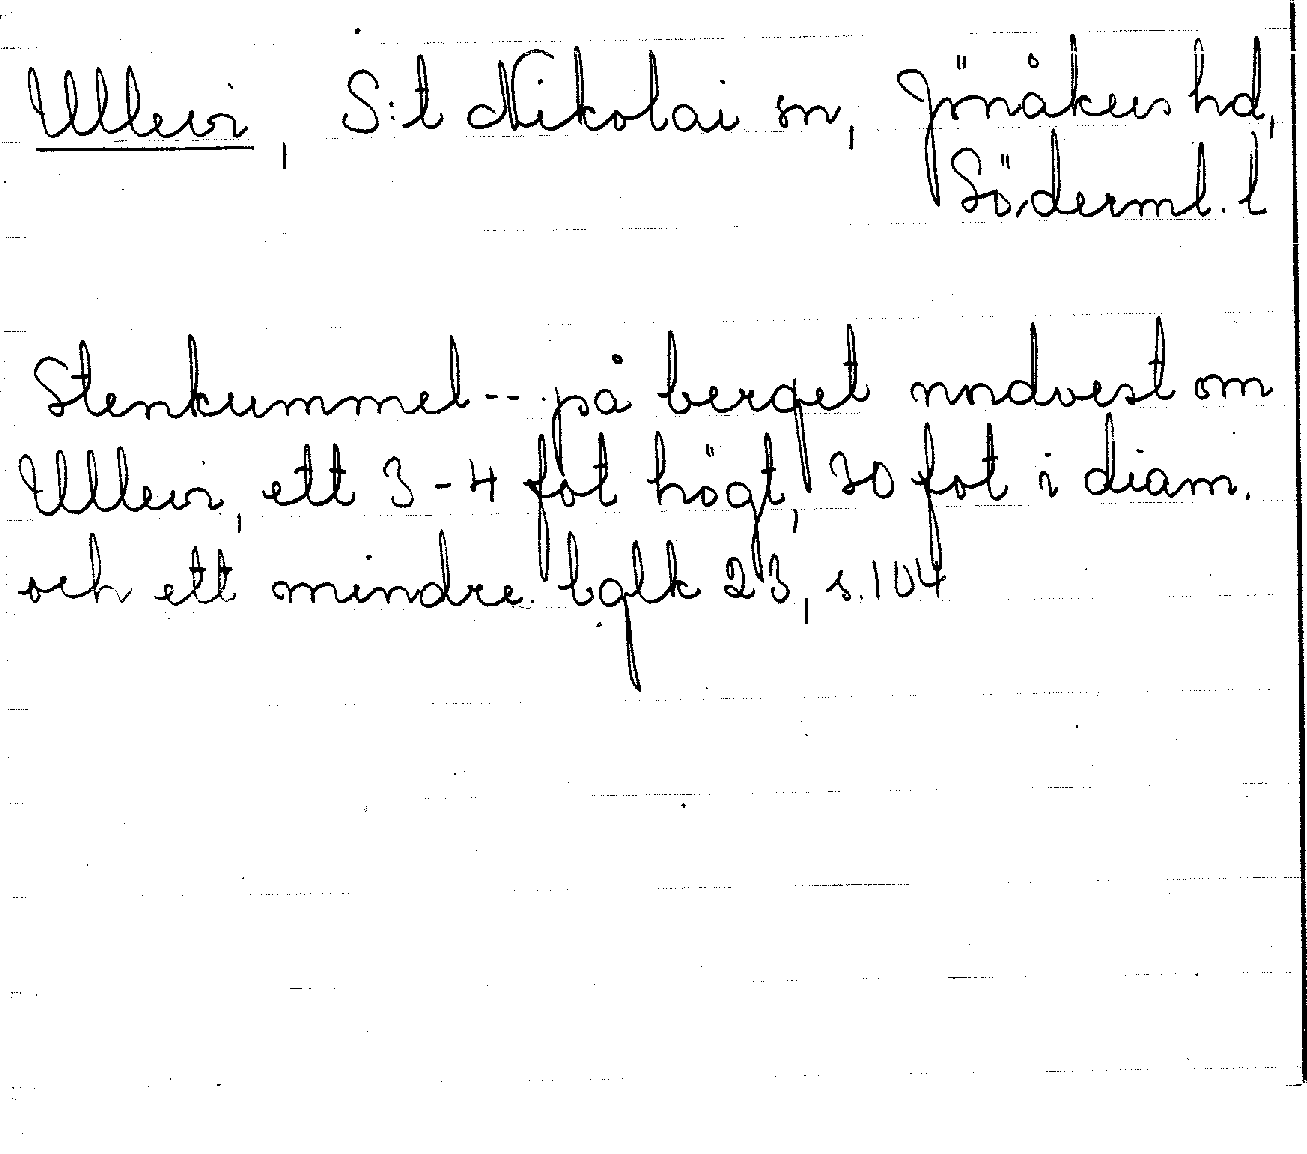 Ullevi, S:t Nikolai sn, Jönåkers hd,
Söderml. l
Stenkummel -- på berget nordvest om
Ullevi, ett 3-4 fot högt, 30 fot i diam.
och ett mindre. bglk 23, s. 104